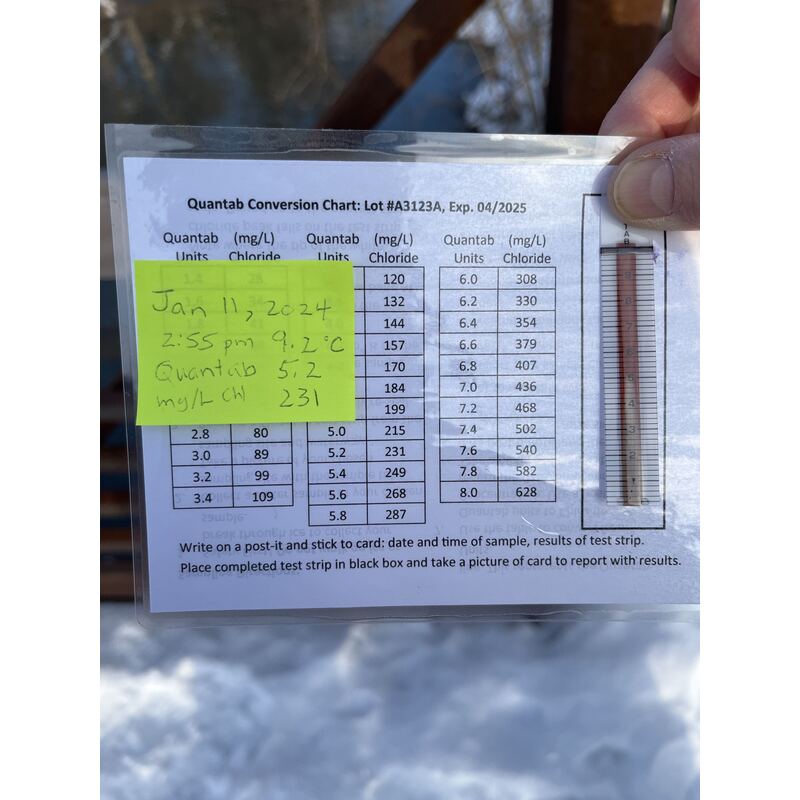 Quantab Conversion Chart: Lot #A3123A, Exp. 04/2025
Quantab (mg/L) Quantab (mg/L) Quantab (mg/L)
Units Chloride Units Chloride Units Chloride
1.4 28 120 6.0 308
132 6.2 330
144 6.4 354
157 6.6 379
170 6.8 407
184 7.0 436
199 7.2 468
2.8 80 5.0 215 7.4 502
3.0 89 5.2 231 7.6 540
3.2 99 5.4 249 7.8 582
3.4 109 5.6 268 8.0 628
5.8 287
Jan 11, 2024
2:55 pm 9.2°C
Quantab 5.2
mg/L Chl 231
Write on a post-it and stick to card: date and time of sample, results of test strip.
Place completed test strip in black box and take a picture of card to report with results.
T
A
B
9
8
7
6
5
4
3
2
1